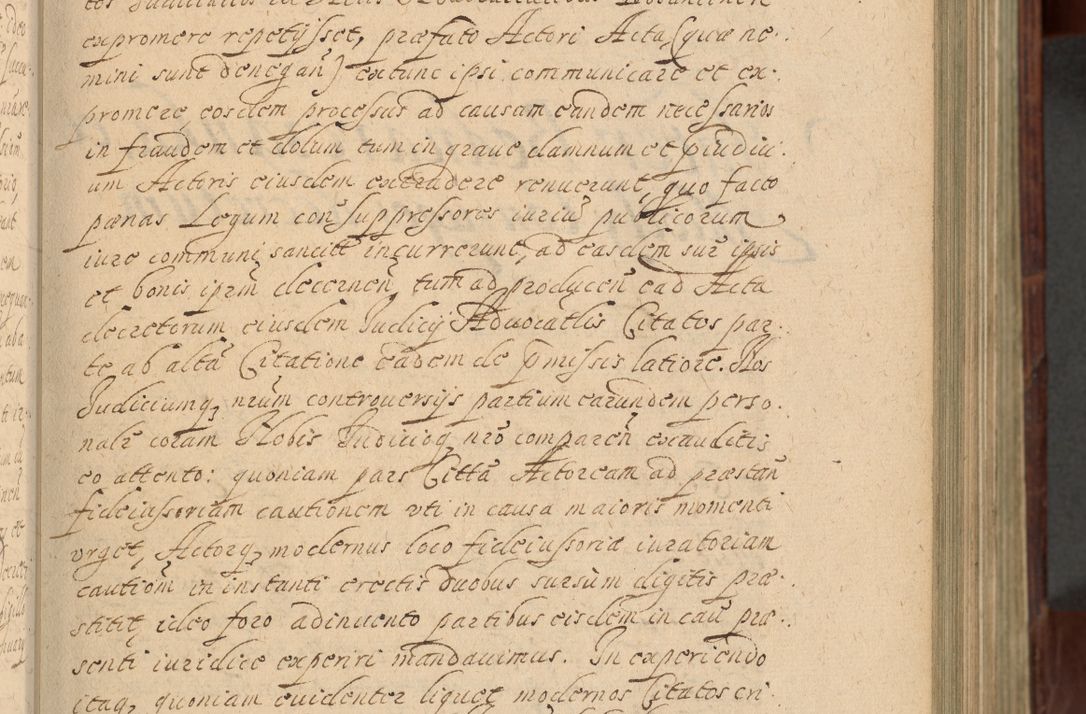 expromere repetijsset, præfato Actori Acta, (quæ ne-
mini sunt denegañ) extunc ipsi communicare et ex-
promere, eosdem processus ad causam eandem necessarios
in fraudem et dolum tum in graue damnum et p̃iudici-
um Actoris eiusdem extradere renuerunt, quo facto
pænas Legum con suppressores iuriũ publicorum,
iure communi sancitt incurrerunt, ad easdem sup ipsis
et bonis ipm̃ decerneñ, tum ad produceñ ead Acta
decretorum eiusdem Judicij Aduocatlis Citatos par-
te ab altã Citatione eadem de p̃missis latiore. Nos
Judiciumq, nrũm controuersijs partium earundem perso-
nalr coram Nobis Judicioq, nro compareñ exauditis
eo attento: quoniam pars Citta Actoream ad præstañ
fideiussoriam cautionem vti in causa maioris momenti
vrget, Actorq, modernus loco fideiussoriæ iuratoriam
cautiom̃ in instanti erectis duobus sursùm digitis præ-
stitit, ideo foro adinuento partibus eisdem in caũ præ-
senti iuridice experiri mandauimus. In experiendo
itaq, quoniam euidenter liquet modernos Citatos cri-